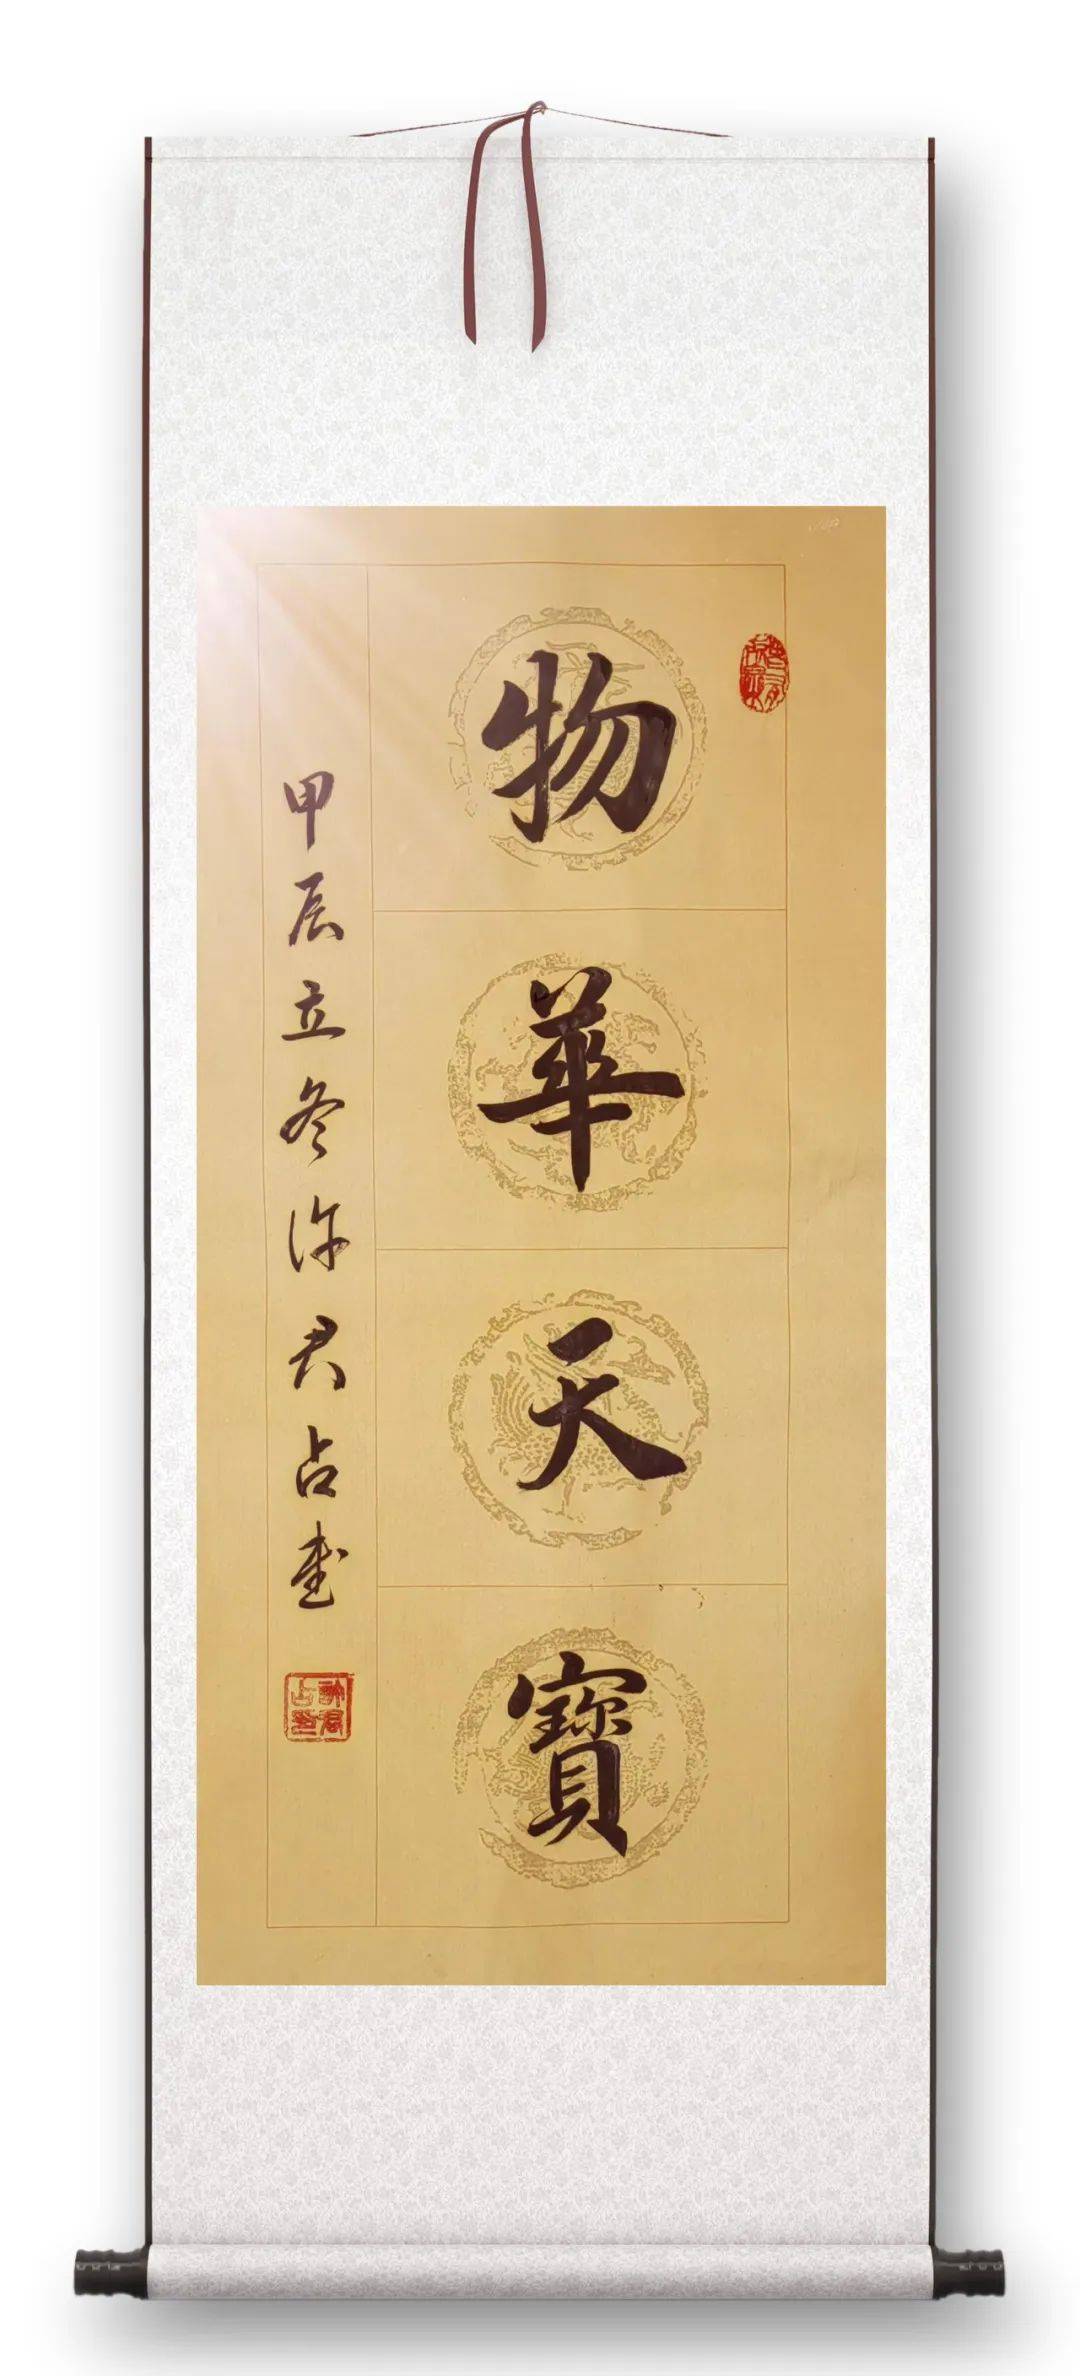 物華天寶
甲辰立冬许君占書
許君占印